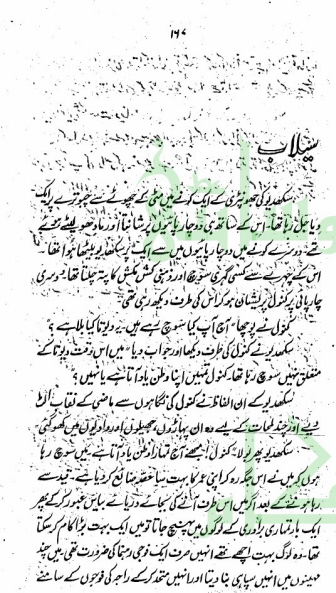 ۱۶۷
سیلاب
سکھدیو کی جھونپڑی کے ایک کونے میں مٹی کے چھوٹے سے چبوترے پر ایک
دیا جل رہا تھا۔ اس کے ساتھ ہی دو چارپائیوں پر شانتا اور مادھو لیٹے ہوئے
تھے۔ دوسرے کونے میں دو چارپائیوں میں سے ایک پر سکھدیو بیٹھا ہوا تھا۔
اس کے چہرے سے کسی گہری سوچ اور ذہنی کش مکش کا پتہ چلتا تھا۔ دوسری
چارپائی پر کنول پریشانی ہو کر اس کی طرف دیکھ رہی تھی۔
کنول نے پوچھا "آج آپ کیا سوچ رہے ہیں۔ دیوتا کیا بلا ہے؟
سکھدیو نے کنول کی طرف دیکھا اور جواب دیا "میں اس وقت دیوتا کے
متعلق نہیں سوچ رہا تھا۔ کنول تمہیں اپنا وطن یاد آتا ہے یا نہیں؟
سکھدیو کے ان الفاظ نے کنول کی نگاہوں سے ماضی کے نقاب الٹ
دیئے اور چند لمحات کے لیے وہ ان پہاڑوں، جھیلوں اور وادیوں میں کھو گئی
سکھدیو پھر بولا "کنول! مجھے آج تمہارا وطن یاد آتا ہے۔ میں سوچ رہا
ہوں کہ میں نے اس جگہ رہ کر اپنی عمر کا بہت سا حصہ ضائع کر دیا ہے۔ قید سے
رہا ہونے کے بعد اگر میں اس طرف آنے کی بجائے دریائے بیاس عبور کر کے پھر
ایک بار تمہاری برادری کے لوگوں میں پہنچ جاتا تو میں ایک بہت بڑا کام کر سکتا
تھا۔ وہ لوگ بہت اچھے تھے انہیں صرف ایک فوجی رہنما کی ضرورت تھی میں چند
مہینوں میں انہیں سپاہی بنا دیتا اور انہیں متحد کر کے راجہ کی فوجوں کے سامنے